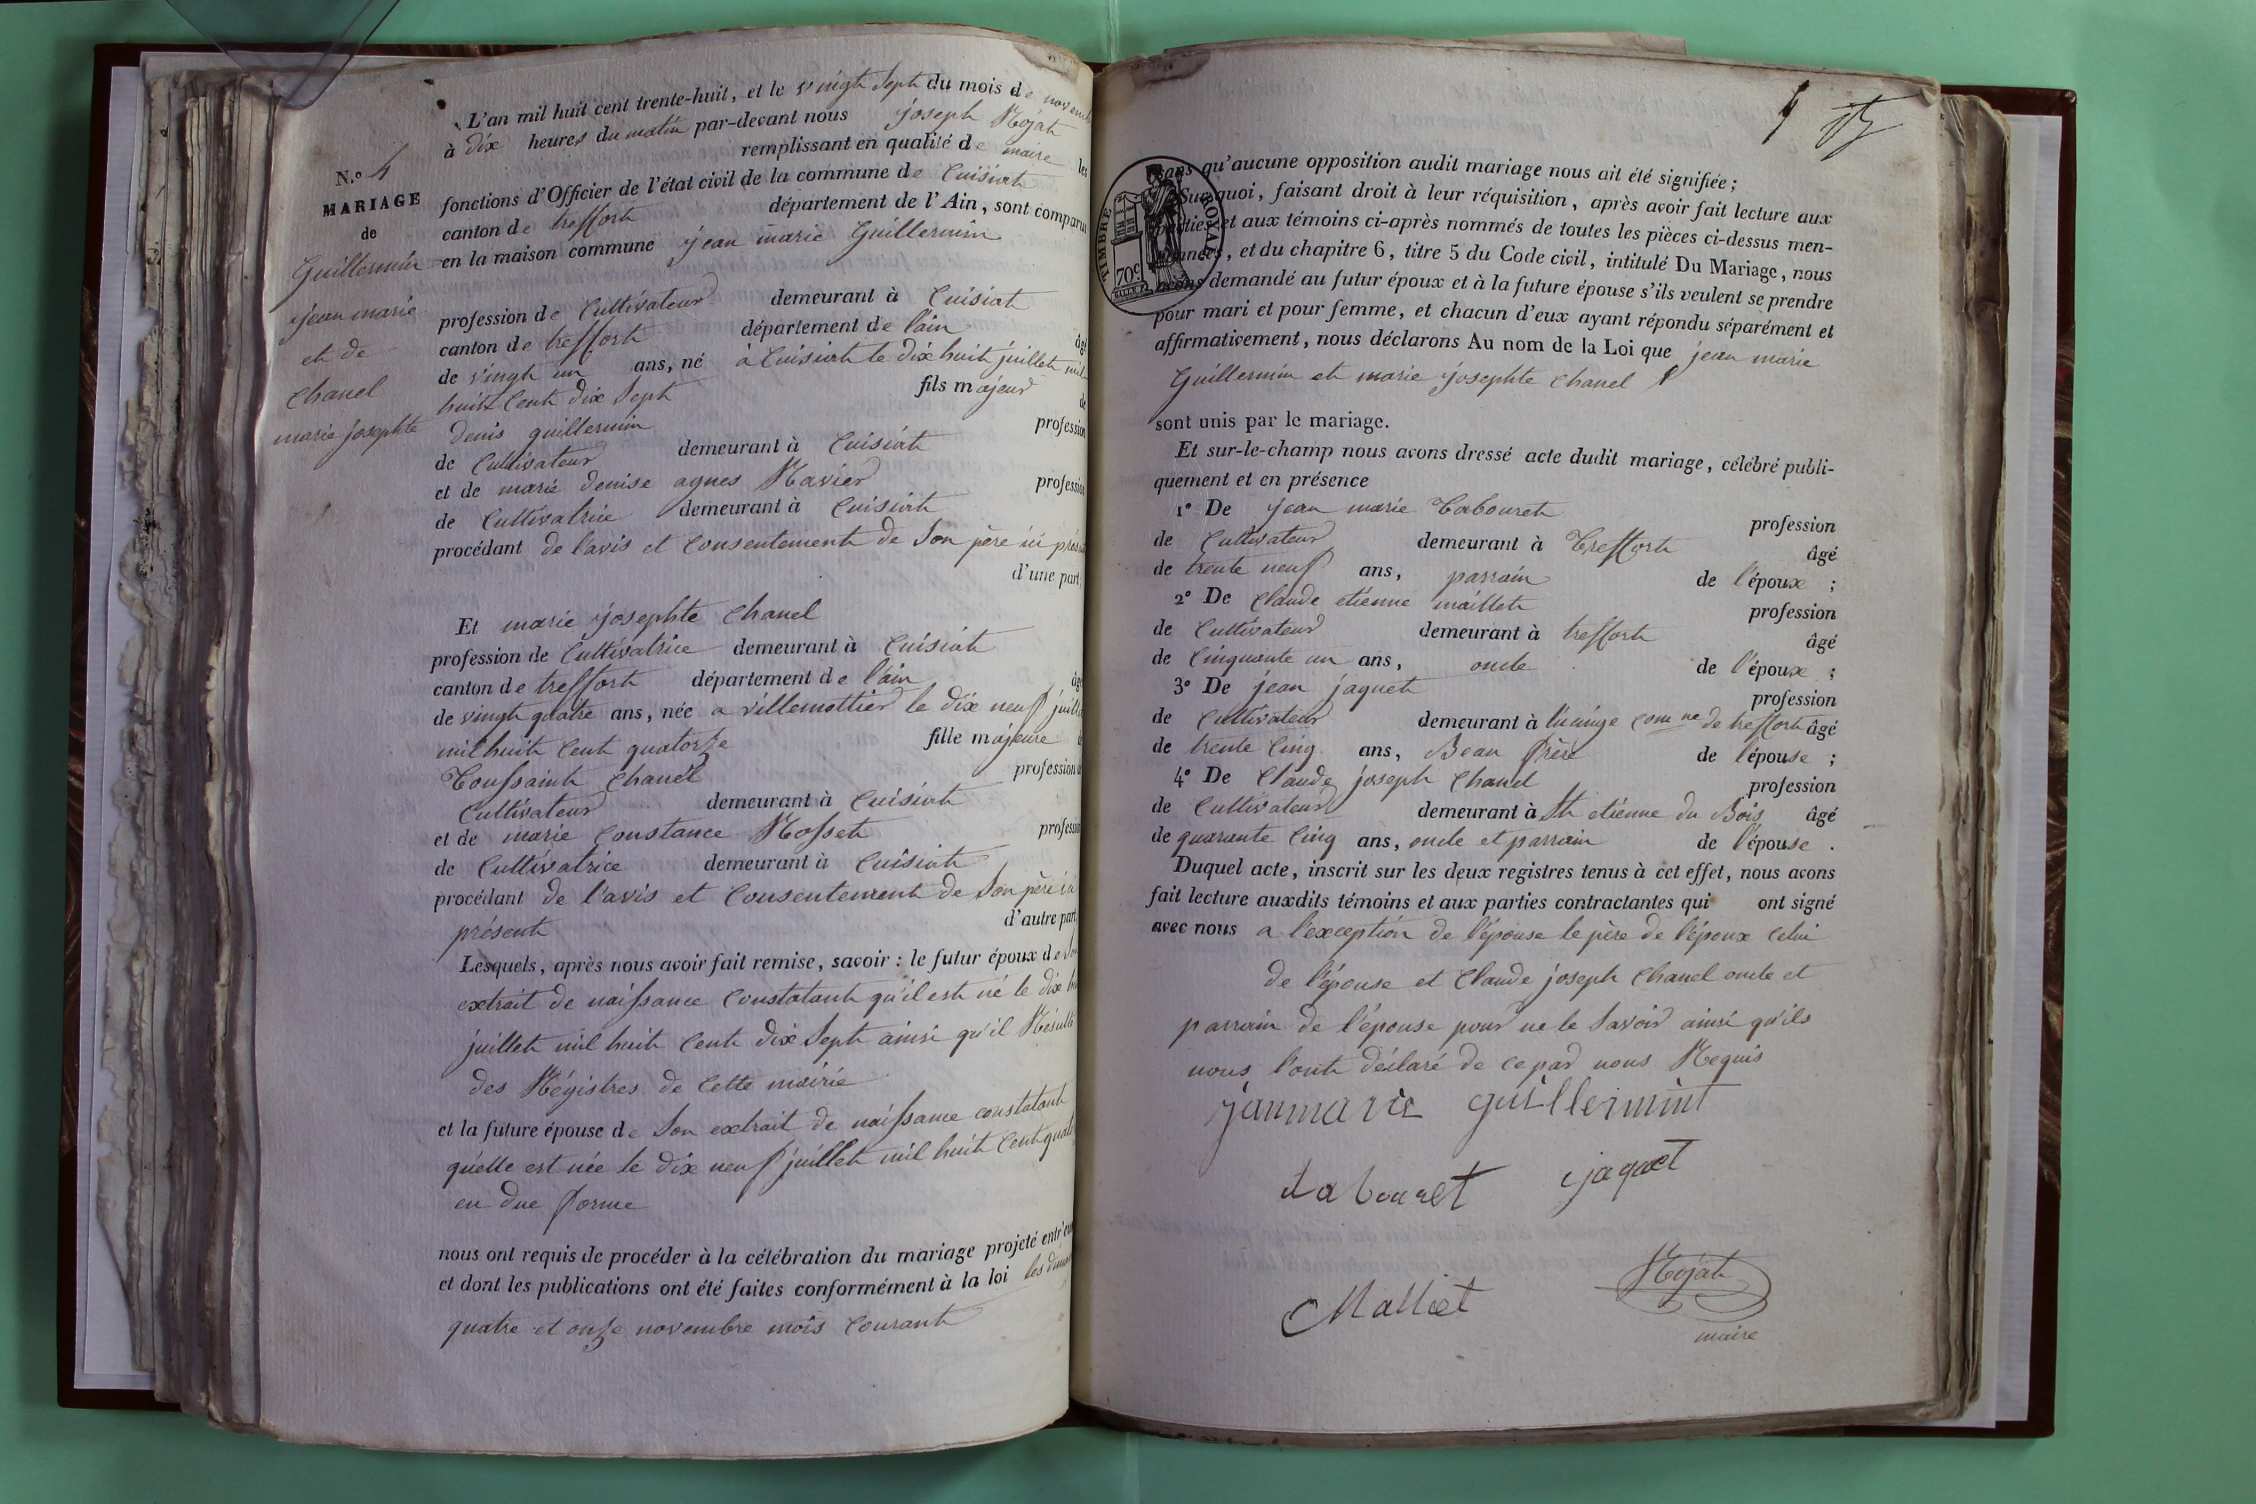 L'an mil huit cent trente-huit, et le vingt Sept du mois de novembre
à dix heures du matin par-devant nous joseph Rojat
remplissant en qualité de maire les
fonctions d'Officier de l'état civil de la commune de Cuisiat
canton de treffort département de l'Ain, sont comparus
en la maison commune jean marie Guillermin
profession de Cultivateur demeurant à Cuisiat
canton de treffort département de l'ain âgé
de vingt un ans, né à Cuisiat le dix huit juillet mil
huit Cent dix Sept fils majeur de
denis guillermin profession
de Cultivateur demeurant à Cuisiat
et de marie denise agnes Ravier profession
de Cultivatrice demeurant à Cuisiat
procédant de l'avis et Consentement de Son père ici présent
d'une part;
N.º 4
MARIAGE
de
Guillermin
jean marie
et de
Chanel
marie josephte
Et marie josephte Chanel
profession de Cultivatrice demeurant à Cuisiat
canton de treffort département de l'ain âgée
de vingt quatre ans, née a villemottier le dix neuf juillet
mil huit Cent quatorze fille majeure de
Toussaint Chanel profession de
Cultivateur demeurant à Cuisiat
et de marie Constance Rosset profession
de Cultivatrice demeurant à Cuisiat
procédant de l'avis et Consentement de Son père ici
présent d'autre part
Lesquels, après nous avoir fait remise, savoir : le futur époux de Son
extrait de naissance Constatant qu'il est né le dix huit
juillet mil huit Cent dix Sept ainsi qu'il Résulte
des Régistres de Cette mairie
et la future épouse de Son extrait de naissance constatant
qu'elle est née le dix neuf juillet mil huit Cent quatorze
en due forme
nous ont requis de procéder à la célébration du mariage projeté entr'eux
et dont les publications ont été faites conformément à la loi les dimanches
quatre et onze novembre mois Courant
4
TIMBRE ROYAL
70c
sans qu'aucune opposition audit mariage nous ait été signifiée ;
Sur quoi, faisant droit à leur réquisition, après avoir fait lecture aux
parties et aux témoins ci-après nommés de toutes les pièces ci-dessus men-
tionnées, et du chapitre 6, titre 5 du Code civil, intitulé Du Mariage, nous
avons demandé au futur époux et à la future épouse s'ils veulent se prendre
pour mari et pour femme, et chacun d'eux ayant répondu séparément et
affirmativement, nous déclarons Au nom de la Loi que jean marie
Guillermin et marie josephte Chanel
sont unis par le mariage.
Et sur-le-champ nous avons dressé acte dudit mariage, célébré publi-
quement et en présence
1º De jean marie Tabouret profession
de Cultivateur demeurant à Treffort âgé
de trente neuf ans, parrain de l'époux ;
2º De Claude etienne maillet profession
de Cultivateur demeurant à treffort âgé
de Cinquante un ans, oncle de l'époux ;
3º De jean jaquet profession
de Cultivateur demeurant à lucinge Com ne de treffort âgé
de trente Cinq ans, Beau frère de l'épouse ;
4º De Claude joseph Chanel profession
de Cultivateur demeurant à St etienne du Bois âgé
de quarante Cinq ans, oncle et parrain de l'épouse .
Duquel acte, inscrit sur les deux registres tenus à cet effet, nous avons
fait lecture auxdits témoins et aux parties contractantes qui ont signé
avec nous a l'exception de l'épouse le père de l'époux Celui
de l'épouse et Claude joseph Chanel oncle et
parrain de l'épouse pour ne le Savoir ainsi qu'ils
nous l'ont déclaré de ce par nous Requis
janmarie guillermint
tabouret jaquet
Malliet Rojat
maire